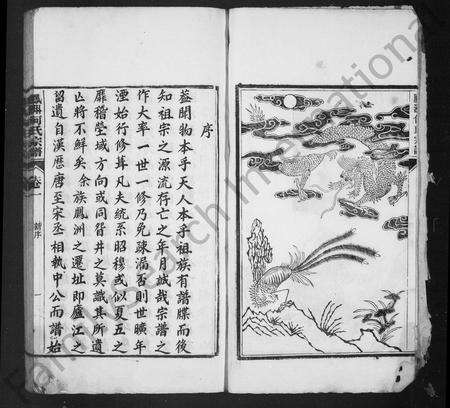 序
蓋聞物本乎天人本乎祖族有譜牒而後
知祖宗之源流存亡之年月誠哉宗譜之
作大率一世一修乃免疎漏否則世曠年
湮始行修葺凡夫統系昭穆或似夏五之
靡稽塋域方向或同眢井之莫識其所遺
亾將不鮮矣余族鳳洲之遷址即廬江之
留遺自漢歷唐至宋丞相執中公而譜始
氏宗譜
卷一
譜序
一